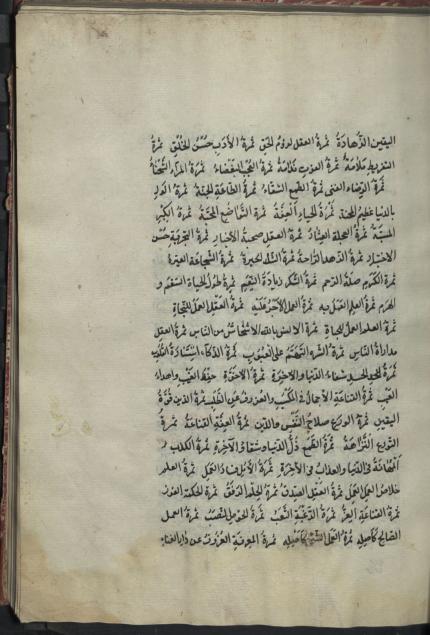 اليقين الزهادة ثمرة العقل لزوم الحق ثمرة الأدب حسن الخلق ثمرة
التفريط ملامة ثمرة الفوت ندامة ثمرة العجب البغضاء ثمرة المراء الشحناء
ثمرة الرضاء الغنى ثمرة الطمع الشقاء ثمرة الطاعة الجنة ثمرة الوله
بالدنيا عظيم المحنة ثمرة الحياء العفة ثمرة التواضع المحبة ثمرة الكبر
المسبة ثمرة العجلة العثار ثمرة العقل صحبة الأخيار ثمرة التجربة حسن
الاختيار ثمرة الزهد الراحة ثمرة الشك الحيرة ثمرة الشجاعة الغيرة
ثمرة الكرم صلة الرحم ثمرة الشكر زيادة النعم ثمرة طول الحياة السقم و
الهرم ثمرة العلم العمل به ثمرة العمل الأجر عليه ثمرة العقل العمل للنجاة
ثمرة العلم العمل للحياة ثمرة الانس بالله الاستيحاش من الناس ثمرة العقل
مداراة الناس ثمرة الشره التهجم على العيوب ثمرة
ثمرة الحسد شقاء الدنيا والآخرة ثمرة الاخوة حفظ الغيب واهداء
العيب ثمرة القناعة الاجمال في المكتسب والعزوف عن الطلب ثمرة الدين قوة
اليقين ثمرة الورع صلاح النفس والدين ثمرة العفة القناعة ثمرة
التورع النزاهة ثمرة الطمع ذل الدنيا وشقاء الآخرة ثمرة الكذب
المهانة في الدنيا والعذاب في الآخرة ثمرة الأمل فساد العمل ثمرة العلم
اخلاص العمل ثمرة العقل الصدق ثمرة الحلم الرفق ثمرة الحكمة الفوز
ثمرة القناعة العز ثمرة الرغبة التعب ثمرة الحرص النصب ثمرة العمل
الصالح كأصله ثمرة العمل السيئ كأصله ثمرة المعرفة العزوف عن دار الفناء